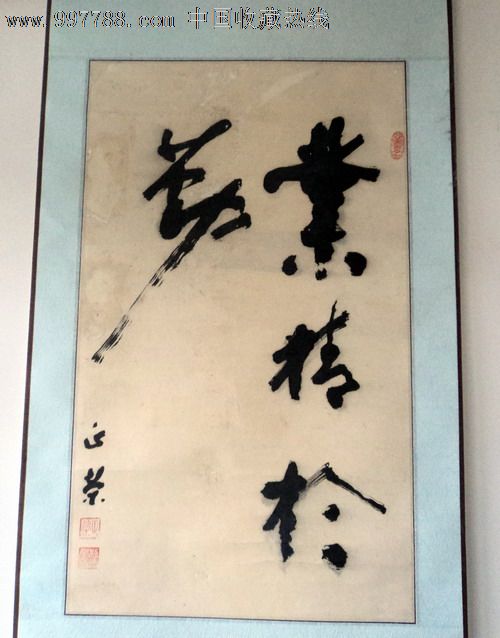 www.997788.com 中国收藏热线
業精於
勤
正荣